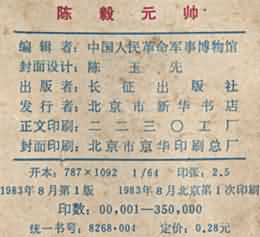 陈毅元帅
编辑者:中国人民革命军事博物馆
封面设计:陈玉先
出版者:长征出版社
发行者:北京市新华书店
正文印刷:二二三〇工厂
封面印刷:北京市京华印刷总厂
开本:787×1092 1/64 印张:2.5
1983年8月第1版 1983年8月北京第1次印刷
印数:00,001—350,000
统一书号:8268·004 定价:0.28元